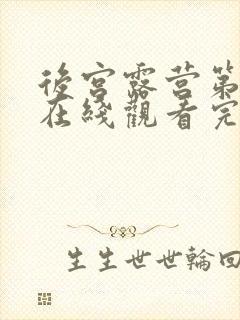 後宮露营第
在綫觀看完
生生世世輪回